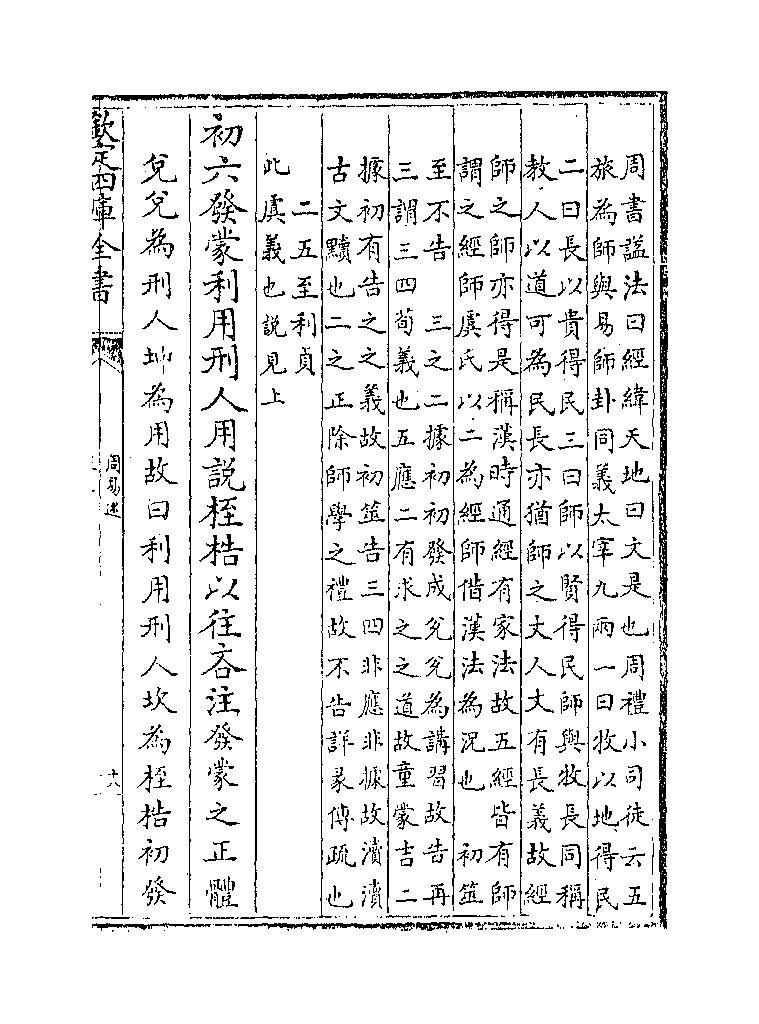 周書諡法曰經緯天地曰文是也周禮小司徒云五
旅為師與易師卦同義太宰九兩一曰牧以地得民
二曰長以貴得民三曰師以賢得民師與牧長同稱
教人以道可為民長亦猶師之丈人丈有長義故經
師之師亦得是稱漢時通經有家法故五經皆有師
謂之經師虞氏以二為經師借漢法為況也　初筮
至不告　三之二據初初發成兌兌為講習故告再
三謂三四荀義也五應二有求之之道故童蒙吉二
據初有告之之義故初筮告三四非應非據故瀆瀆
古文黷也二之正除師學之禮故不告詳彖傳疏也
　二五至利貞
此虞義也説見上
初六發蒙利用刑人用説桎梏以往吝注發蒙之正體
兌兌為刑人坤為用故曰利用刑人坎為桎梏初發
欽定四庫全書
周易述
十六